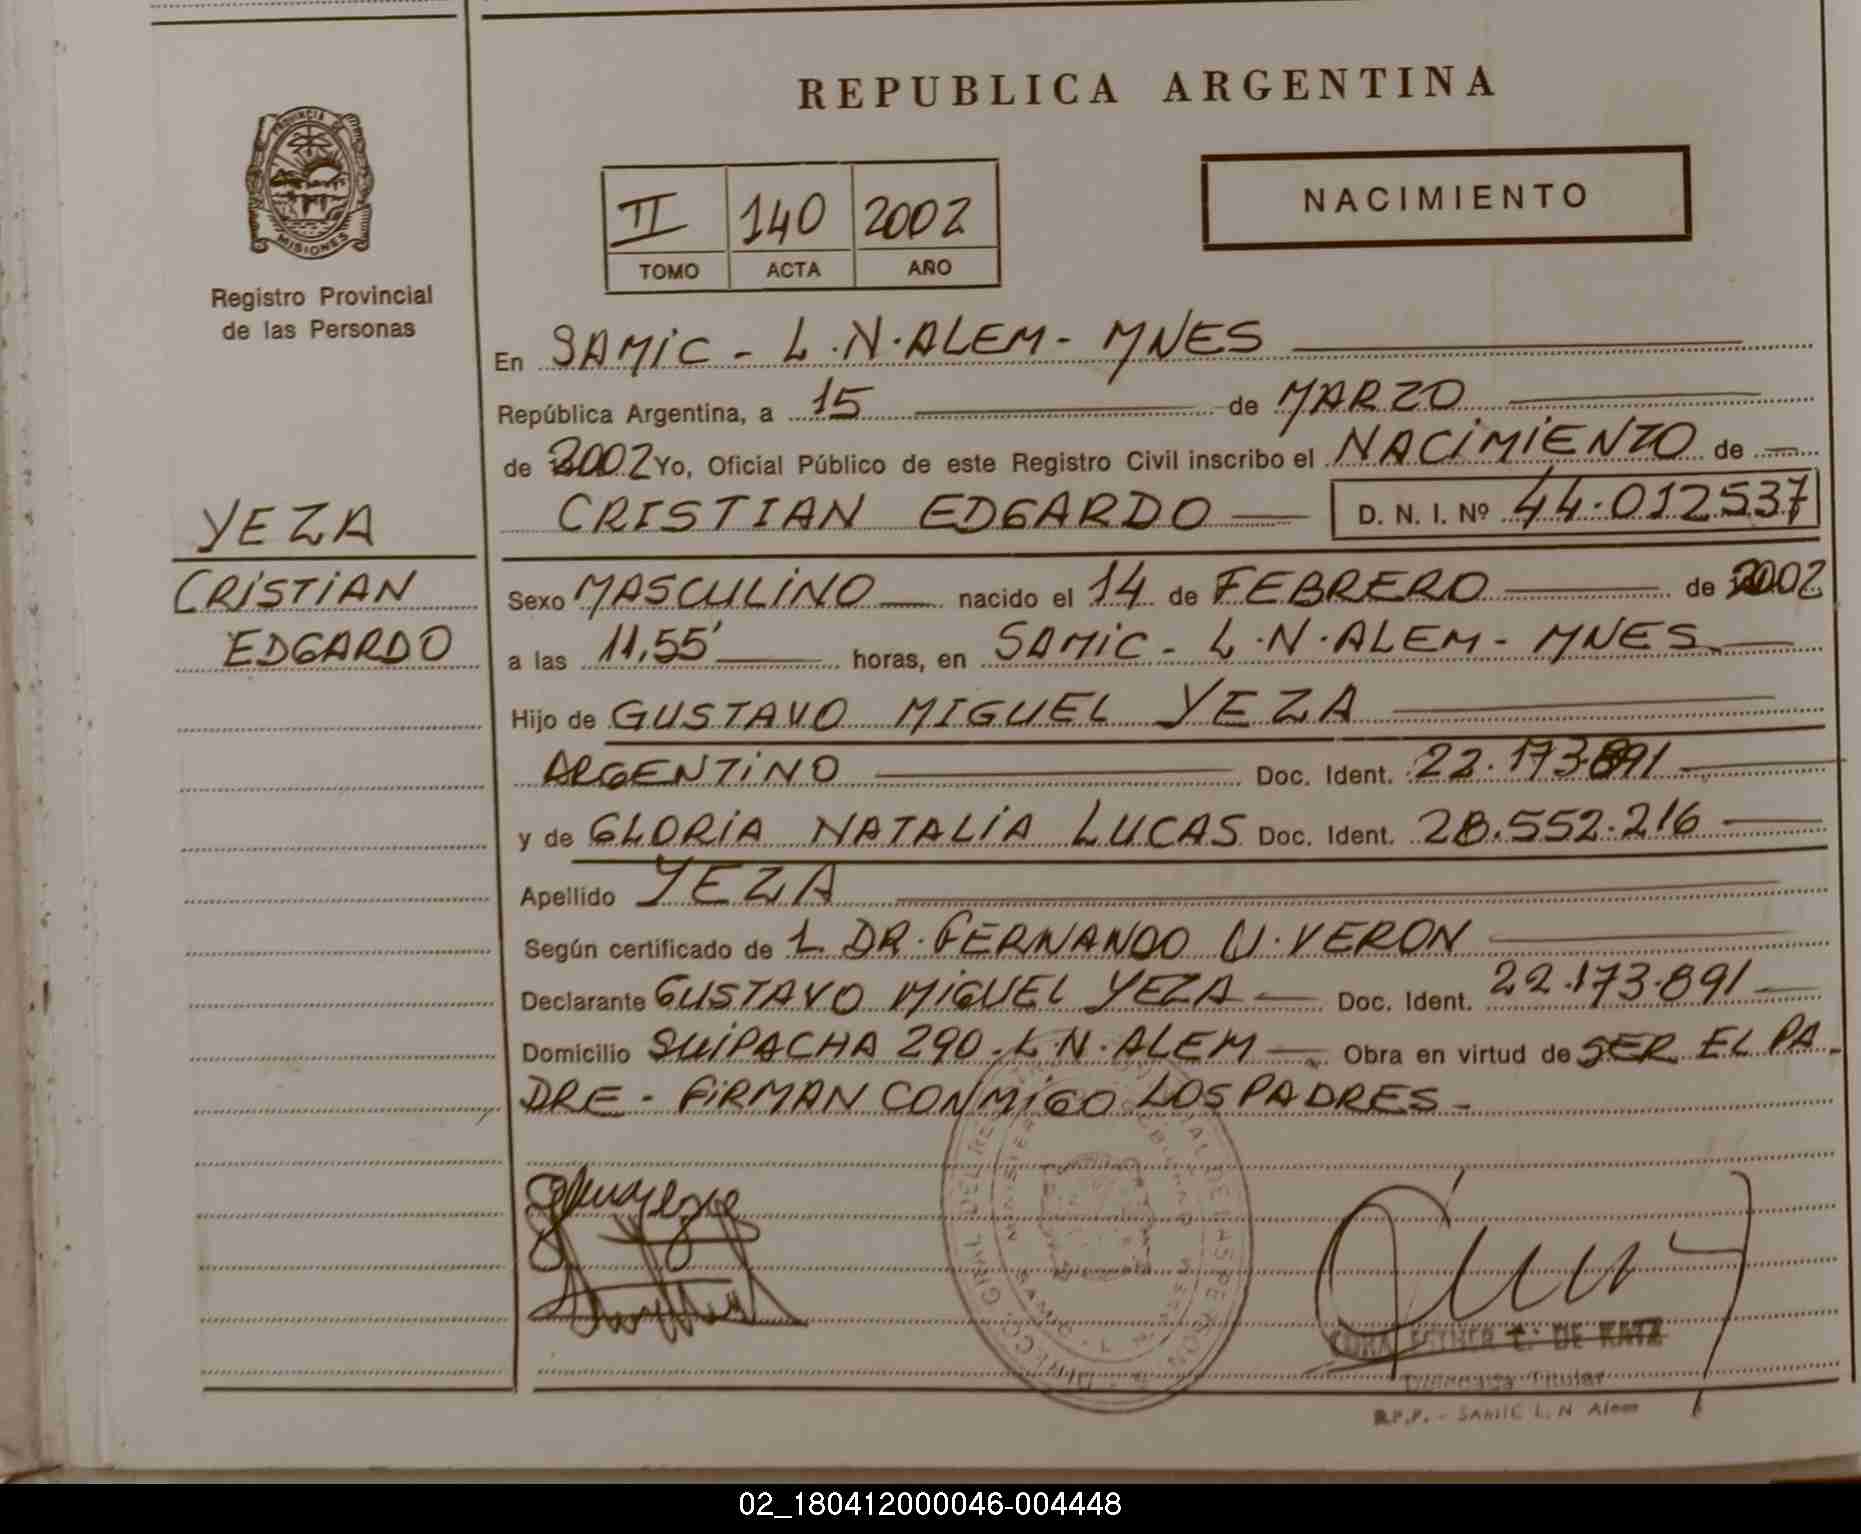 REPUBLICA ARGENTINA
PROVINCIA DE
MISIONES
Registro Provincial
de las Personas
II 140 2002
TOMO ACTA AÑO
NACIMIENTO
En SAMIC - L.N.ALEM - MNES
República Argentina, a 15 de MARZO
de 2002 Yo, Oficial Público de este Registro Civil inscribo el NACIMIENTO de
CRISTIAN EDGARDO D. N. I. Nº 44.012537
YEZA
CRISTIAN
EDGARDO
Sexo MASCULINO nacido el 14 de FEBRERO de 2002
a las 11,55' horas, en SAMIC - L.N.ALEM - MNES
Hijo de GUSTAVO MIGUEL YEZA
ARGENTINO Doc. Ident. 22.173.891
y de GLORIA NATALIA LUCAS Doc. Ident. 28.552.216
Apellido YEZA
Según certificado de 1 DR. FERNANDO N. VERON
Declarante GUSTAVO MIGUEL YEZA Doc. Ident. 22.173.891
Domicilio SUIPACHA 290 - L.N.ALEM Obra en virtud de SER EL PA-
DRE - FIRMAN CONMIGO LOS PADRES -
ESTHER C. DE KATZ
Delegada Titular
R.P.P. - SAMIC L. N Alem
02_180412000046-004448